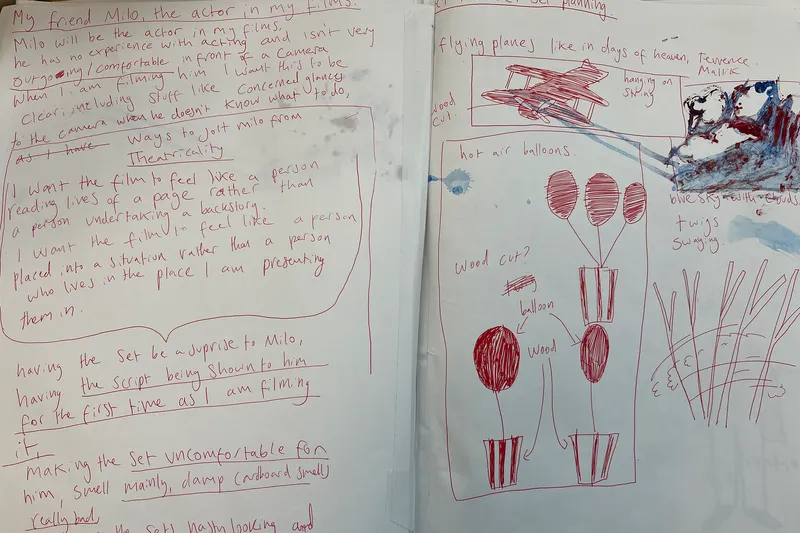 My friend Milo, the actor in my films.
Milo will be the actor in my films.
he has no experience with acting and isn't very
outgoing/comfortable in front of a camera
When I am filming him I want this to be
clear, including stuff like concerned glances
to the camera when he doesn't know what to do,
as I have ways to jolt milo from
Theatricality
I want the film to feel like a person
reading lives of a page rather than
a person undertaking a backstory.
I want the film to feel like a person
placed into a situation rather than a person
who lives in the place I am presenting
them in.
having the set be a suprise to Milo,
having the script being shown to him
for the first time as I am filming
it,
Making the set uncomfortable for
him, smell mainly, damp cardboard smells
really bad,
the sets nasty looking and
set planning
flying planes like in days of heaven, Terrence
Mallik
hanging on
string
wood
cut.
hot air balloons.
blue sky with clouds
twigs
swaying.
wood cut?
balloon
wood